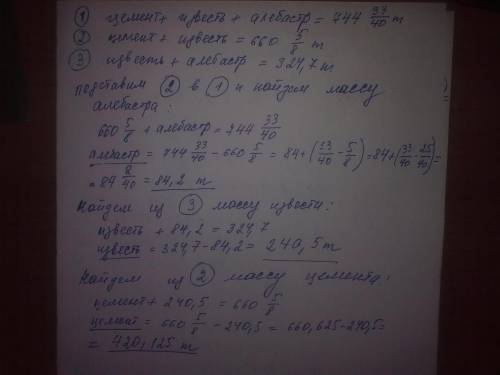 ① цемент + известь + алебастр = 744 33/40 т
② цемент + известь = 660 5/8 т
③ известь + алебастр = 324,7 т
Подставим ② в ① и найдем массу
алебастра:
660 5/8 + алебастр = 244 33/40
алебастр = 744 33/40 - 660 5/8 = 84 + (33/40 - 5/8) = 84 + (33/40 - 25/40) =
= 84 8/40 = 84,2 т
Найдем из ③ массу извести:
известь + 84,2 = 324,7
известь = 324,7 - 84,2 = 240,5 т
Найдем из ② массу цемента:
цемент + 240,5 = 660 5/8
цемент = 660 5/8 - 240,5 = 660,625 - 240,5 =
= 420,125 т